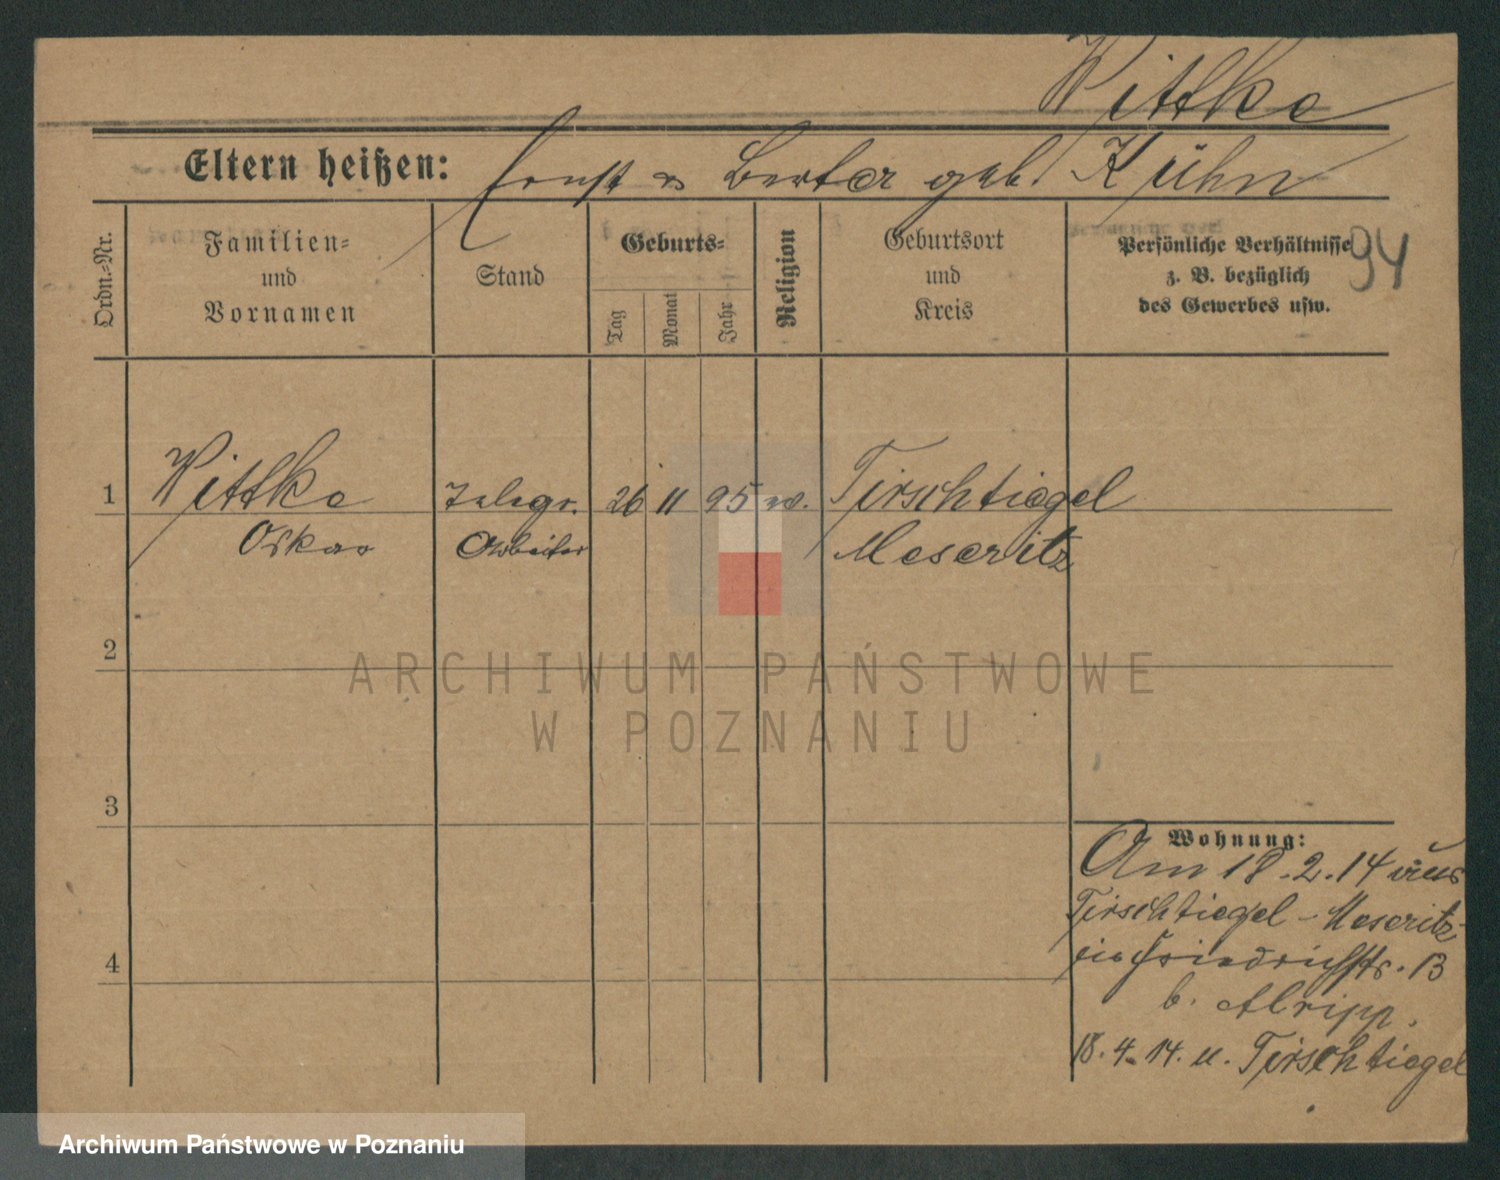 Wittke
Eltern heißen: Ernst u Berta geb. Kühn
94
Ordn.-Nr.
Familien- und Vornamen
Stand
Geburts-
Tag
Monat
Jahr
Religion
Geburtsort und Kreis
Persönliche Verhältnisse z. B. bezüglich des Gewerbes usw.
1 Wittke Telegr. 26 11 95 Tirschtiegel
Oskar Arbeiter Meseritz
2
3
4
Wohnung:
Am 18.2.14 aus
Tirschtiegel - Meseritz
Friedrichstr. 13
b.
18.4.14. n. Tirschtiegel
ARCHIWUM PAŃSTWOWE
W POZNANIU
Archiwum Państwowe w Poznaniu